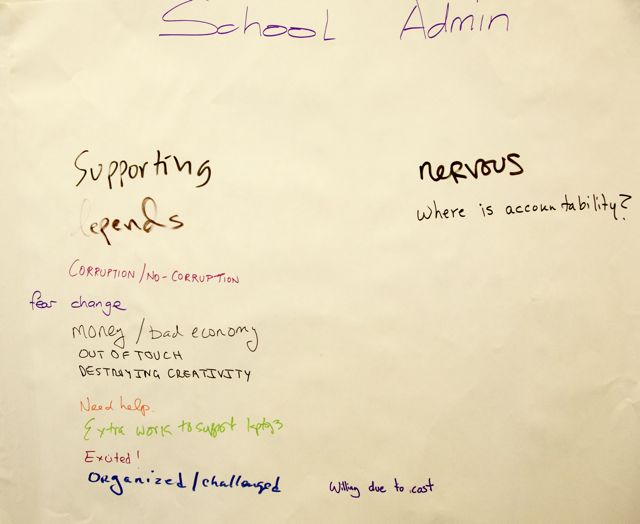 School Admin
Supporting
nervous
depends
where is accountability?
CORRUPTION/NO-CORRUPTION
fear change
money/bad economy
OUT OF TOUCH
DESTROYING CREATIVITY
Need help.
Extra work to support
Excited!
Organized/challenged
Willing due to cost